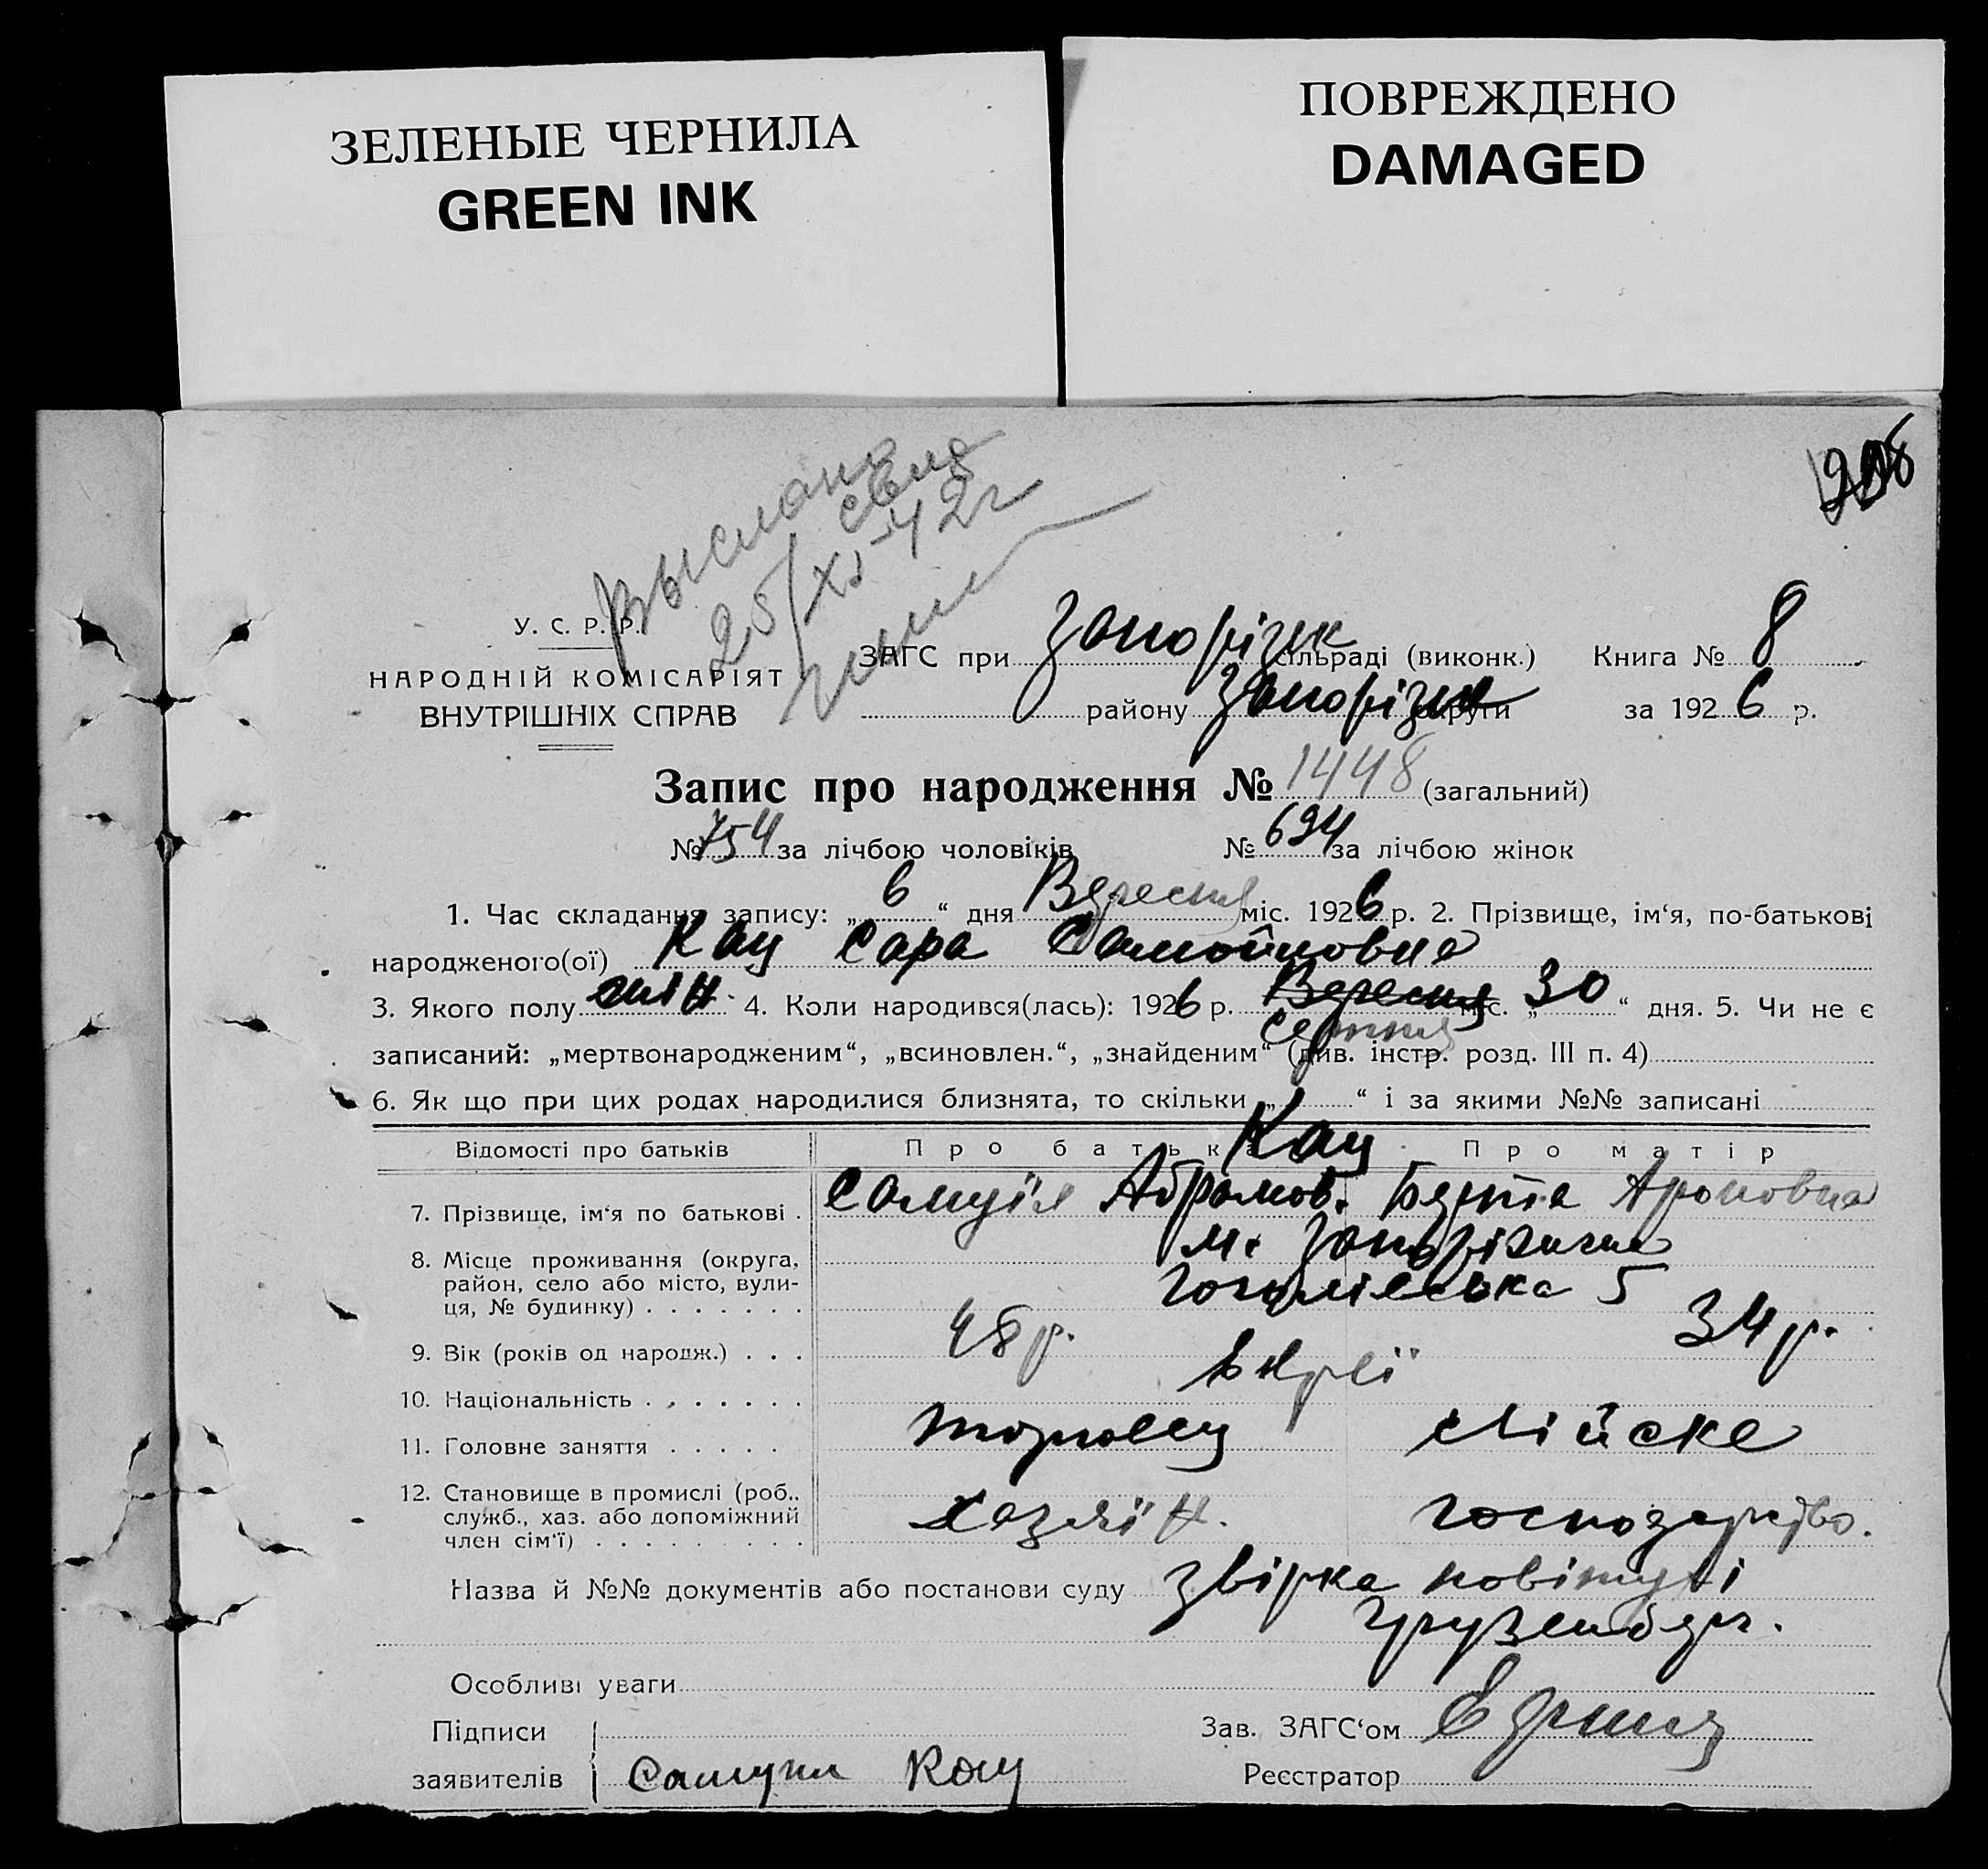 ЗЕЛЕНЫЕ ЧЕРНИЛА
GREEN INK
ПОВРЕЖДЕНО
DAMAGED
выслано
25/XI-42г
У. С. Р. Р.
НАРОДНІЙ КОМІСАРІЯТ
ВНУТРІШНІХ СПРАВ
ЗАГС при Запорізьк сільраді (виконк.) Книга № 8
району Запорізьк округи за 1926 р.
Запис про народження № 1448 (загальний)
№ 754 за лічбою чоловіків № 694 за лічбою жінок
1. Час складання запису: „6“ дня Вересня міс. 1926 р. 2. Прізвище, ім‘я, по-батькові
народженого(ої) Кац Сара Самойловна
3. Якого полу жін. 4. Коли народився(лась): 1926 р. Вересня міс. „30“ дня. 5. Чи не є
серпня
записаний: „мертвонародженим“, „всиновлен.“, „знайденим“ (див. інстр. розд. III п. 4)
6. Як що при цих родах народилися близнята, то скільки „ “ і за якими №№ записані
Відомості про батьків Про батька Про матір
Кац
7. Прізвище, ім‘я по батькові . Самуїл Абрамов. Берта Ароновна
8. Місце проживання (округа,
район, село або місто, вули-
ця, № будинку) . . . . . . .
м. Запоріжжя
Гоголівська 5
9. Вік (років од народж.) . . . 48 р. 34 р.
10. Національність . . . . . . . Євреї
11. Головне заняття . . . . . торговець Хатнє
12. Становище в промислі (роб.,
служб., хаз. або допоміжний
член сім‘ї) . . . . . . . . .
хазяїн. господарство.
Назва й №№ документів або постанови суду звірка повітухі
Грузенберг.
Особливі уваги
Підписи Зав. ЗАГС‘ом
заявителів Самуил Кац Реєстратор